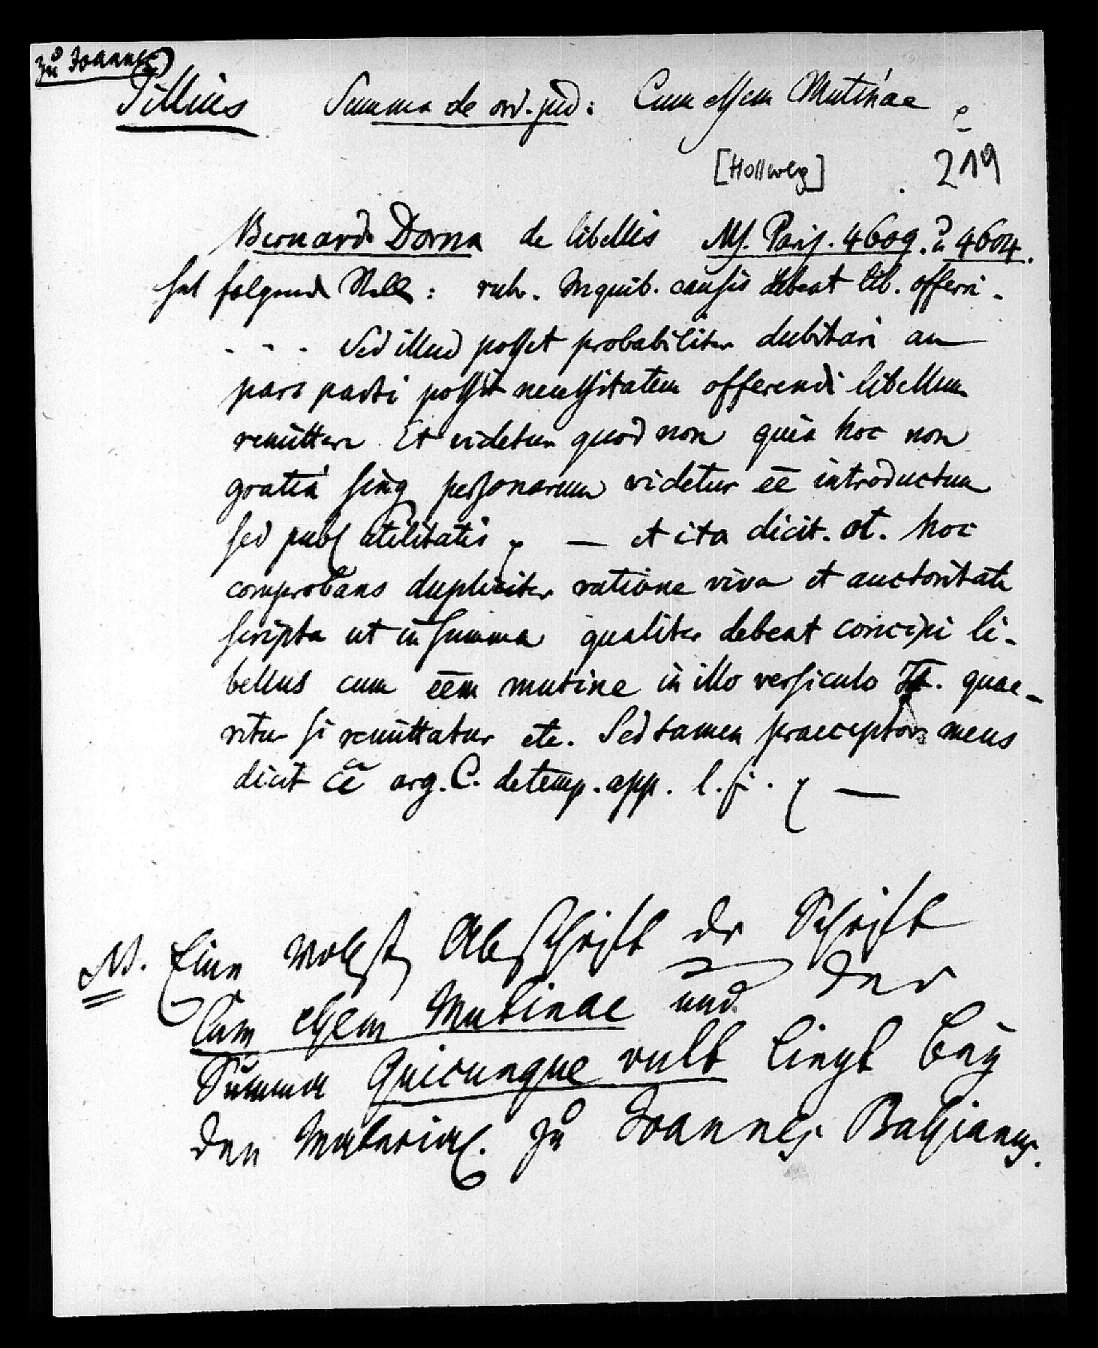 zu Joannes
Pillius Summa de ord. jud: Cum essem Mutinae
[Hollweg] 219
Bernard Dorna de libellis Ms. Paris. 4609. u 4604.
hat folgende Stelle: rubr. In quib. causis debeat lib. offerri.
. . . Sed illud posset probabiliter dubitari an
pars parti possit necessitatem offerendi libellum
remittere Et videtur quod non quia hoc non
gratia sing personarum videtur ēē introductum
sed publ utilitatis — et ita dicit. ot. hoc
comprobans dupliciter ratione viva et auctoritate
scripta ut in summa qualiter debeat concipi li-
bellus cum eēm mutine in illo versiculo It. quae-
ritur si remittatur etc. Sed tamen praeceptor meus
dicit arg. C. de temp. app. l. fi. —
NB. Eine vollst Abschrift der Schrift
Cum essem Mutinae und der
Summa Quicunque vult liegt bey
den Material. zu Joannes Bassianus.